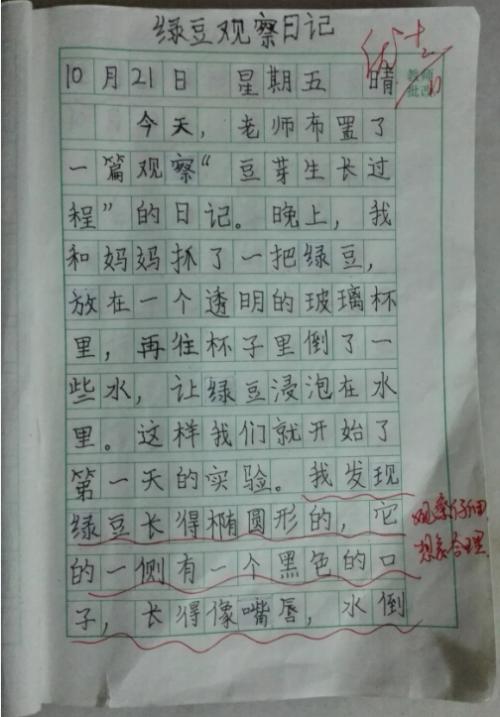 绿豆观察日记
优+2
教师
批改
10月21日 星期五 晴
今天，老师布置了
一篇观察“豆芽生长过
程”的日记。晚上，我
和妈妈抓了一把绿豆，
放在一个透明的玻璃杯
里，再往杯子里倒了一
些水，让绿豆浸泡在水
里。这样我们就开始了
第一天的实验。我发现
绿豆长得椭圆形的，它
的一侧有一个黑色的口
子，长得像嘴唇，水倒
观察仔细
想象合理